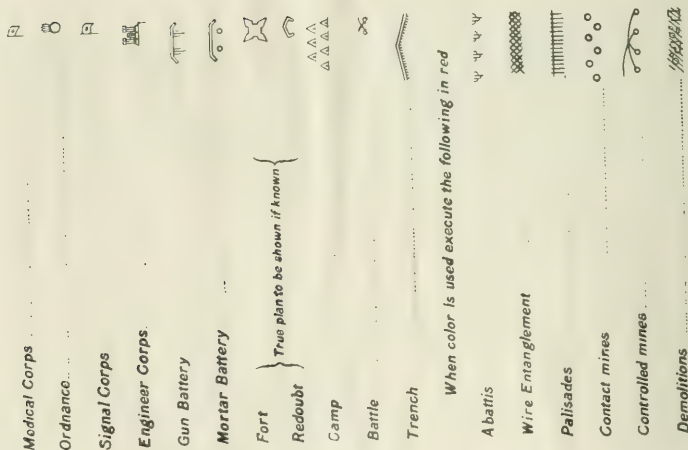 Medical Corps
Ordnance
Signal Corps
Engineer Corps
Gun Battery
Mortar Battery
Fort
True plan to be shown if known
Redoubt
Camp
Battle
Trench
When color is used execute the following in red
Abattis
Wire Entanglement
Palisades
Contact mines
Controlled mines
Demolitions